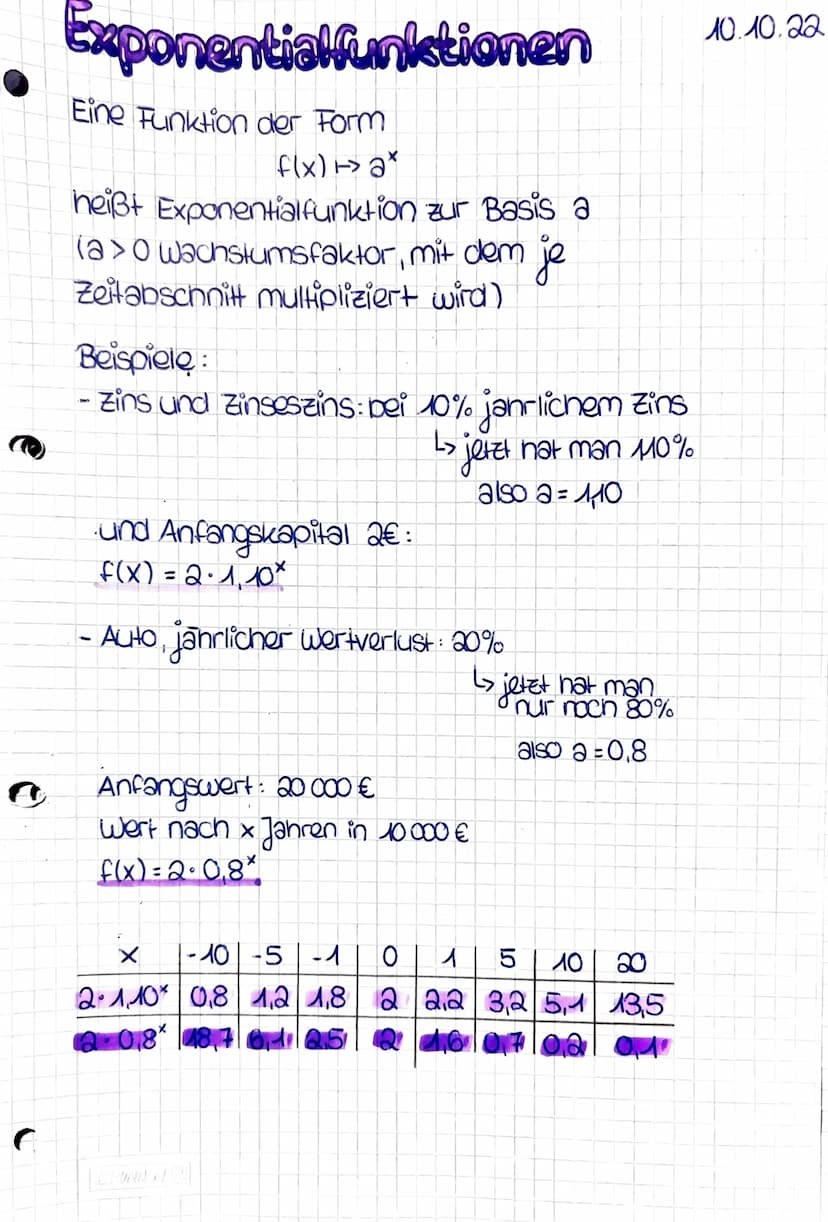 Exponentialfunktionen
10.10.22
Eine Funktion der Form
f(x) ↦ aˣ
heißt Exponentialfunktion zur Basis a
(a > 0 Wachstumsfaktor, mit dem je
Zeitabschnitt multipliziert wird)
Beispiele:
- Zins und Zinseszins: bei 10% jährlichem Zins
↳ jetzt hat man 110%
also a = 1,10
und Anfangskapital 2€:
f(x) = 2 · 1,10ˣ
- Auto, jährlicher Wertverlust: 20%
↳ jetzt hat man
nur noch 80%
also a = 0,8
Anfangswert: 20 000 €
Wert nach x Jahren in 10 000 €
f(x) = 2 · 0,8ˣ
x | -10 | -5 | -1 | 0 | 1 | 5 | 10 | 20
2 · 1,10ˣ | 0,8 | 1,2 | 1,8 | 2 | 2,2 | 3,2 | 5,1 | 13,5
2 · 0,8ˣ | 18,7 | 6,1 | 2,5 | 2 | 1,6 | 0,7 | 0,2 | 0,1